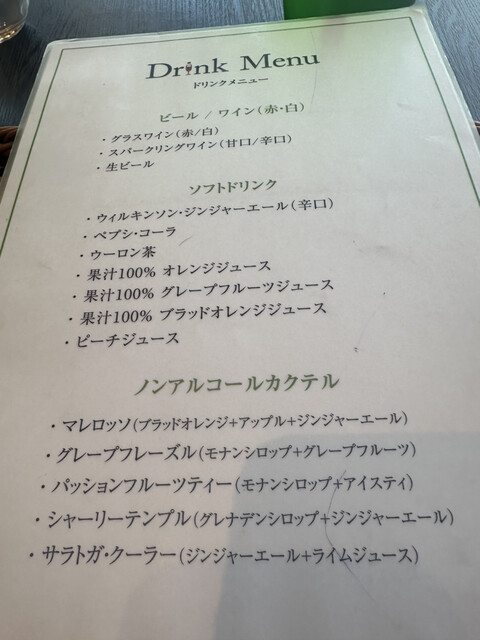 Drink Menu
ドリンクメニュー
ビール / ワイン(赤・白)
・グラスワイン(赤/白)
・スパークリングワイン(甘口/辛口)
・生ビール
ソフトドリンク
・ウィルキンソン・ジンジャーエール(辛口)
・ペプシ・コーラ
・ウーロン茶
・果汁100% オレンジジュース
・果汁100% グレープフルーツジュース
・果汁100% ブラッドオレンジジュース
・ピーチジュース
ノンアルコールカクテル
・マレロッソ(ブラッドオレンジ+アップル+ジンジャーエール)
・グレープフレーズル(モナンシロップ+グレープフルーツ)
・パッションフルーツティー(モナンシロップ+アイスティ)
・シャーリーテンプル(グレナデンシロップ+ジンジャーエール)
・サラトガ・クーラー(ジンジャーエール+ライムジュース)